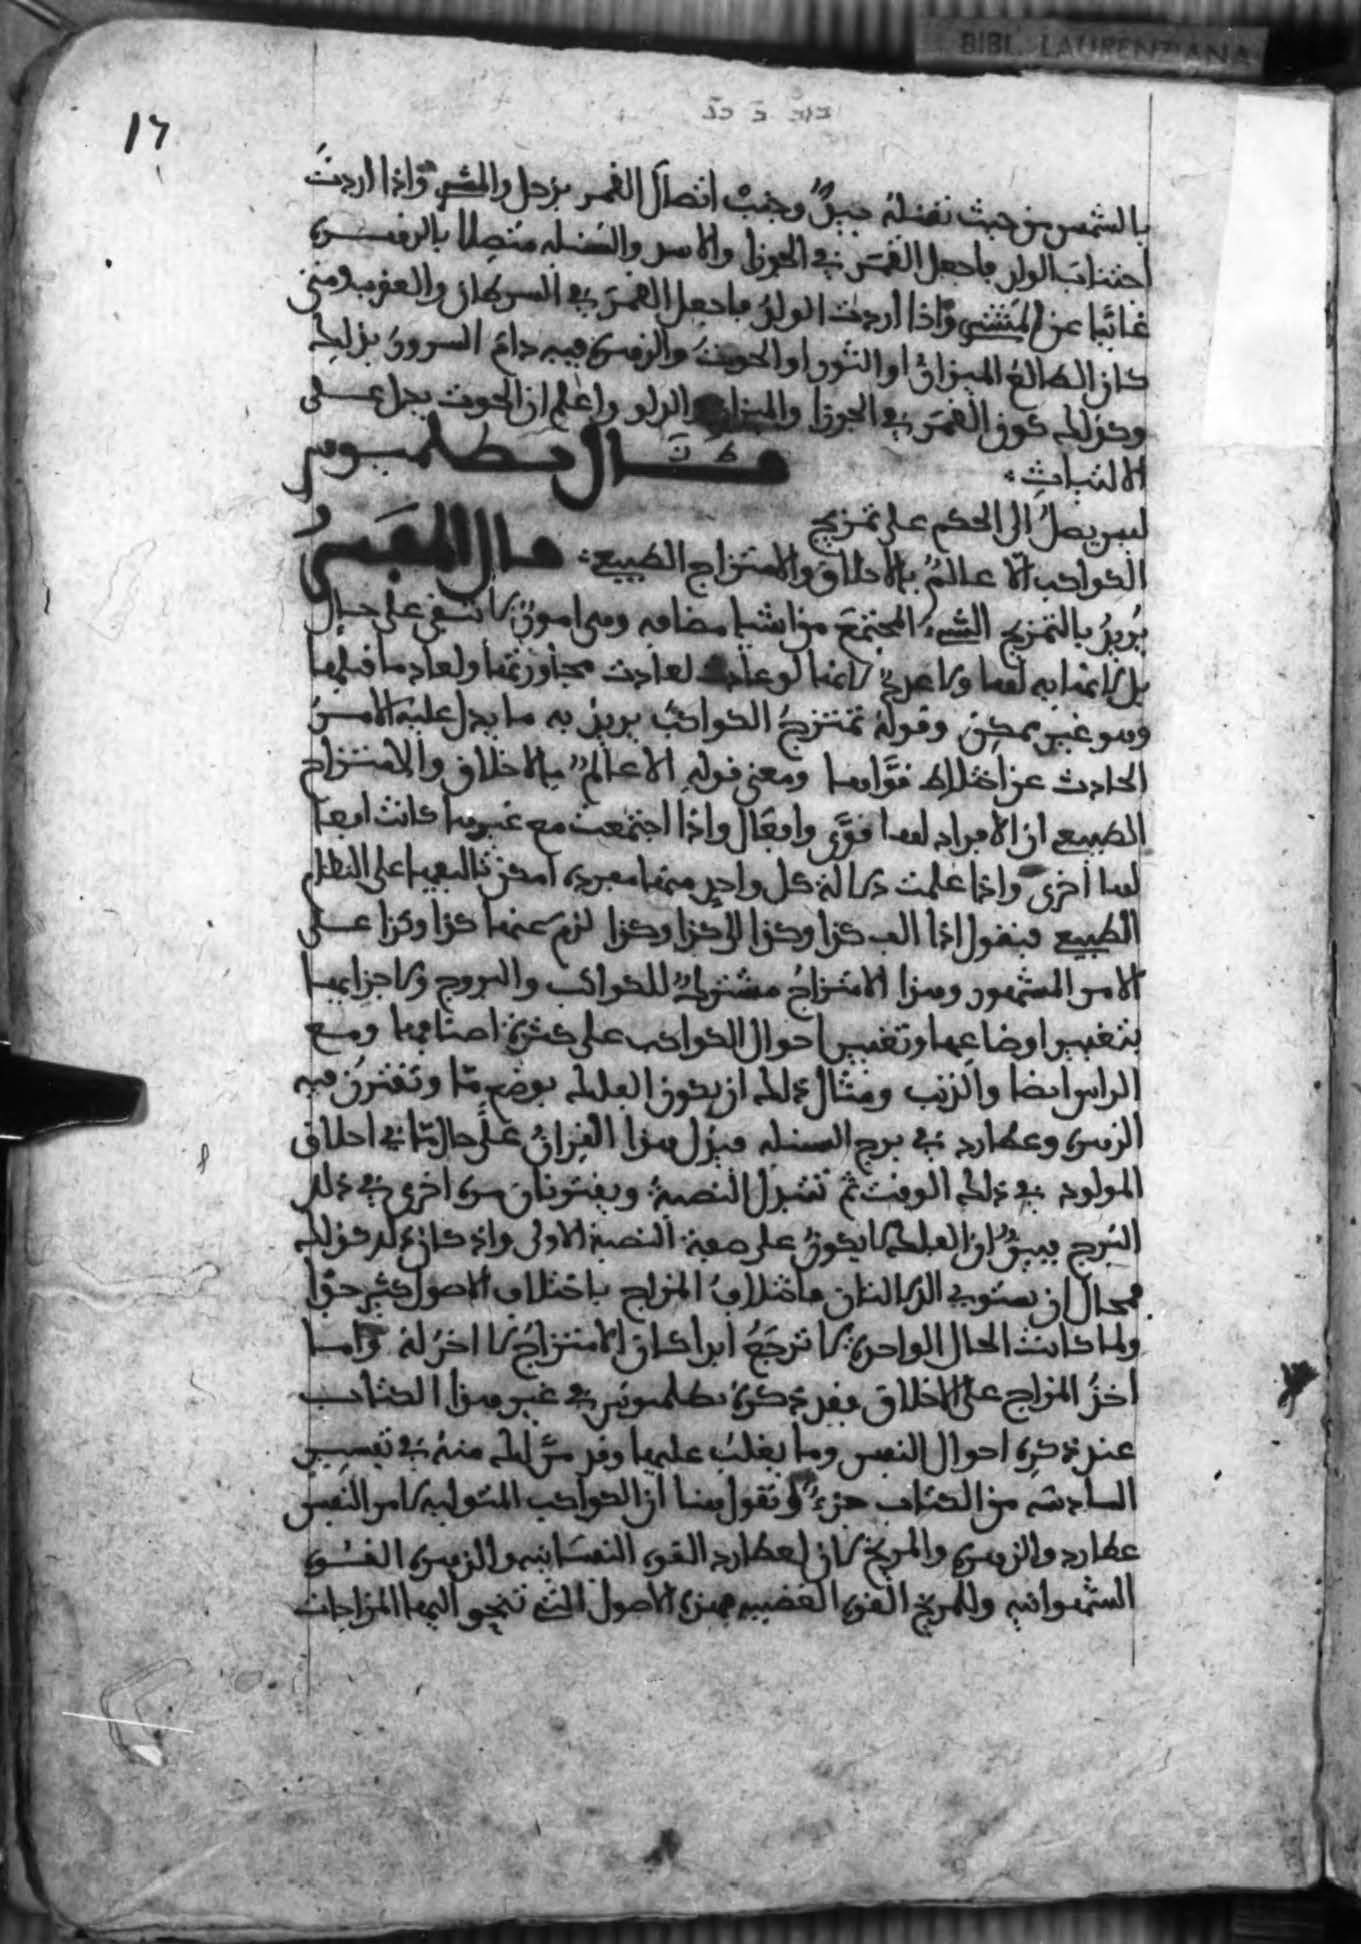 BIBL. LAURENZIANA
16
بالشمس من حيث تفضله جيد وجنب اتصال القمر بزحل والمشتري واذا اردت
اجتناب الولد فاجعل القمر في الجوزا والاسد والسنبلة متصلا بالزهرة
غائبا عن المشتري واذا اردت الولد فاجعل القمر في السرطان والعقرب ومتى
كان الطالع الميزان او الثور او الحوت والزهرة فيه دام السرور بذلك
وكذلك كون القمر في الجوزا والميزان والدلو واعلم ان الحوت يدل على
الالتباث
قال بطلميوس
ليس يصل الى الحكم على تمزيج
الكواكب الا عالم بالاخلاق والامتزاج الطبيعي قال المفسر
يريد بالتمزيج الشيء المجتمع من اشيا مضافه وهي امور لا تبقى على حال
بل لا نهايه لها ولا عودة لانها لو عادت لعادت مجاورتها ولعاد ما قبلها
وهو غير ممكن وقوله تمتزج الكواكب يريد به ما يدل عليه الامر
الحادث عن اختلاط قواها ومعنى قوله الا عالم بالاخلاق والامتزاج
الطبيعي ان الافراد لها قوى وافعال واذا اجتمعت مع غيرها كانت افعا
لها اخرى واذا علمت دلالة كل واحد منها مفردة امكن تاليفها على النظام
الطبيعي فنقول اذا الف كذا وكذا الى كذا وكذا لزم عنها كذا وكذا على
الامر المشهور وهذا الامتزاج مشترك للكواكب والبروج ولاجزايها
بتغيير اوضاعها وتغيير احوال الكواكب على كثرة اصنافها ومع
الراس ايضا والذنب ومثال ذلك ان يكون الفلك بوضع ما وتقترن فيه
الزهرة وعطارد في برج السنبلة فيدل هذا القران على حال ما في اخلاق
المولود في ذلك الوقت ثم تتبدل النصبة ويقترنان مرة اخرى في ذلك
البرج فبين ان الفلك لا يكون على صفة النصبة الاولى واذ كان ذلك كذلك
فمحال ان يستوي الدلالتان فاختلاف المزاج باختلاف الاصول كثير جدا
ولما كانت الحال الواحدة لا ترجع ابدا كان الامتزاج لا اخر له واما
اخذ المزاج على الاخلاق فقد ذكره بطلميوس في غير هذا الكتاب
عند ذكره احوال النفس وما يغلب عليها وقد مر لك منه في تفسير
السادسة من الكتاب جزء ونقول هنا ان الكواكب المتولية لامر النفس
عطارد والزهرة والمريخ لان لعطارد القوى النفسانيه والزهرة القوى
الشهوانيه وللمريخ القوى الغضبيه فهذه الاصول التي تنحو اليها المزاجات